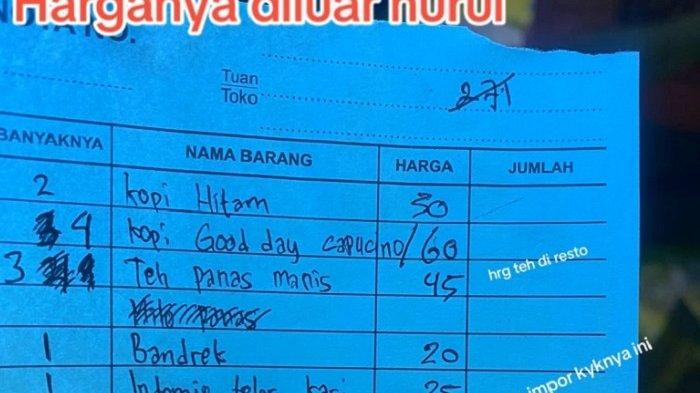 Harganya diluar nurul
Tuan
Toko
271
BANYAKNYA NAMA BARANG HARGA JUMLAH
2 Kopi Hitam 30
4 Kopi Good day capucino/ 60
3 Teh panas manis 45
hrg teh di resto
1 Bandrek 20
1 Indomie telor kari 25
impor kyknya ini